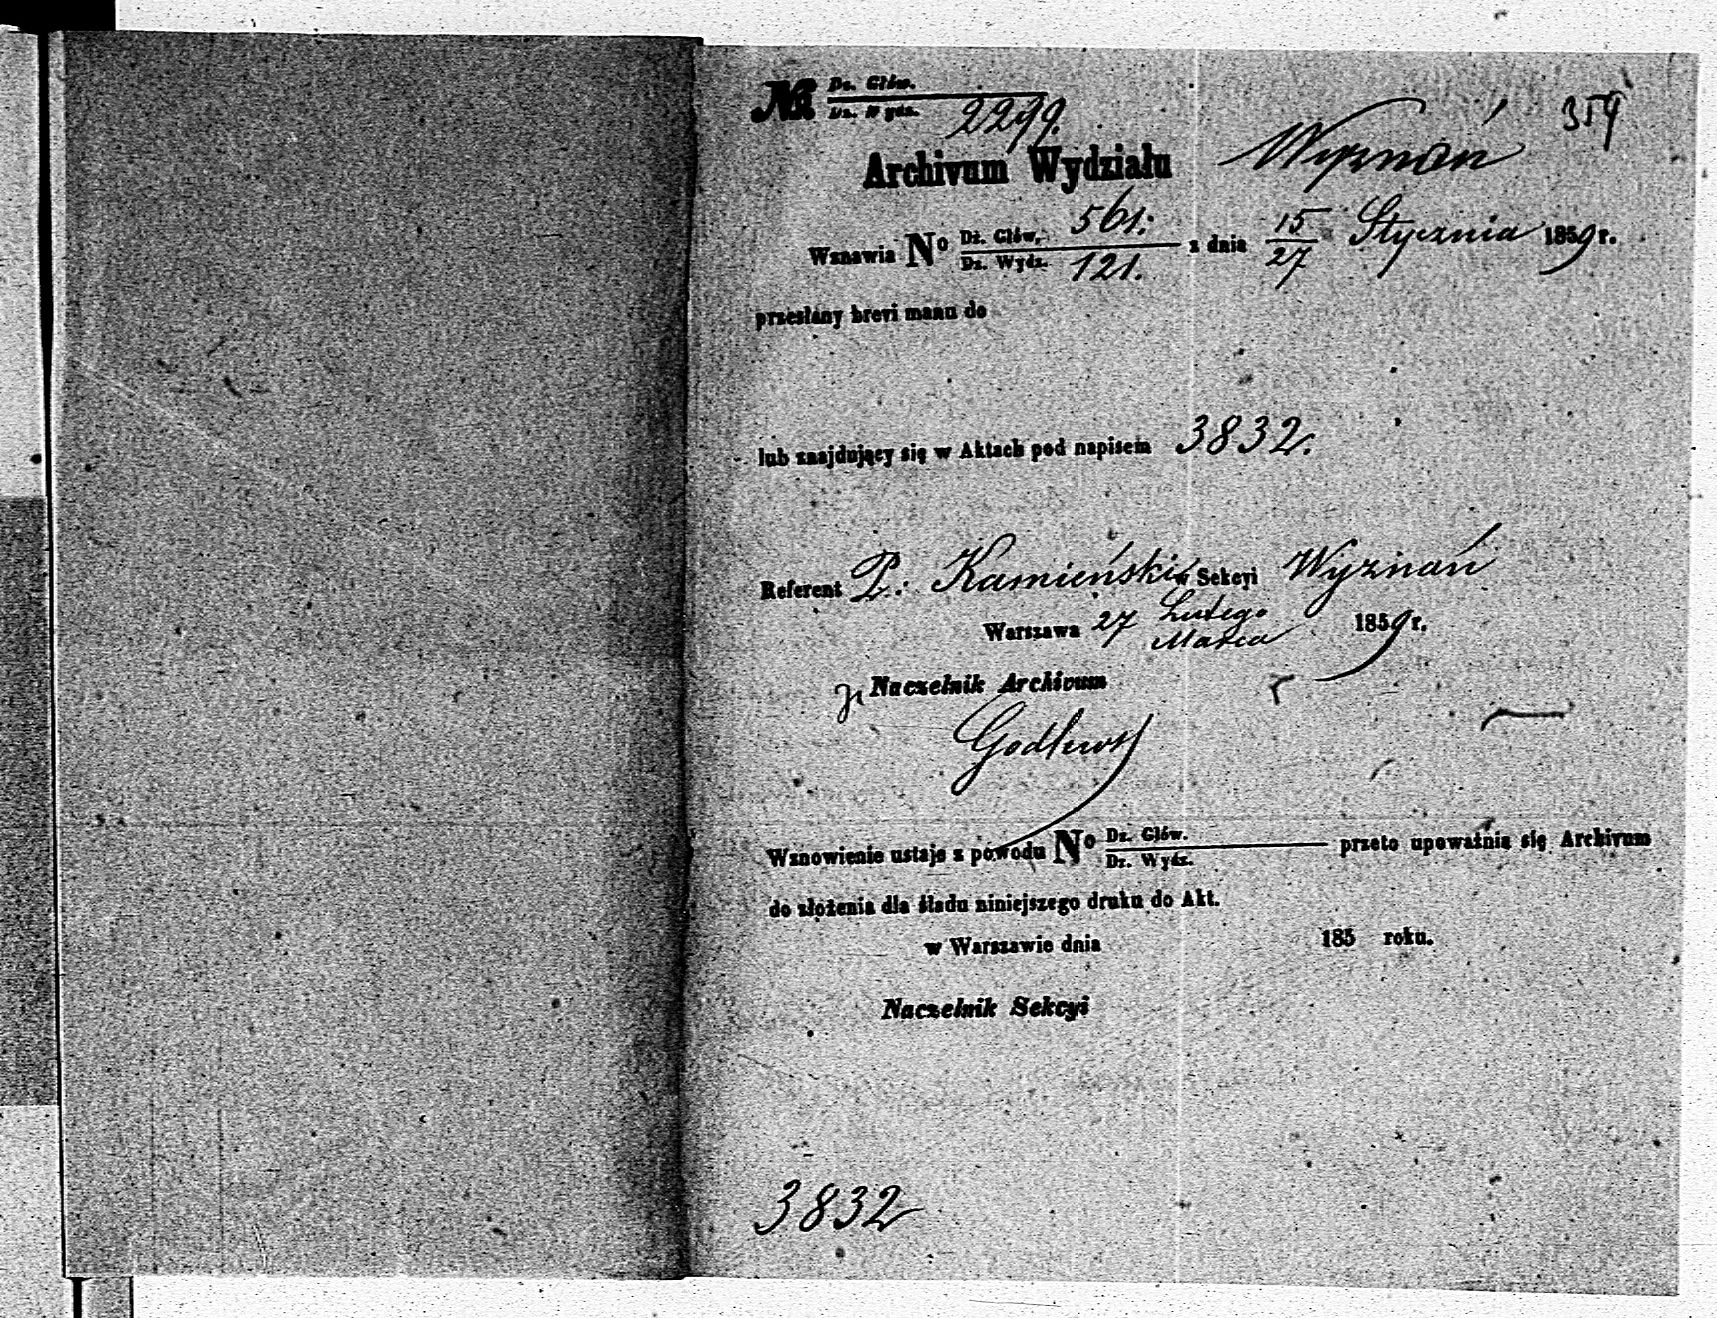 359
No Dz. Głów.
Dz. Wydz. 2299.
Archivum Wydziału Wyznań
Wznawia No Dz. Głów. 561. z dnia 15 Stycznia 1859 r.
Dz. Wydz. 121. 27
przesłany brevi manu do
lub znajdujący się w Aktach pod napisem 3832.
Referent P. Kamieński w Sekcyi Wyznań
Warszawa 27 Lutego 1859 r.
Marca
Naczelnik Archivum
Wznowienie ustaje z powodu No Dz. Głów. przeto upoważnia się Archivum
Dz. Wydz.
do złożenia dla śladu niniejszego druku do Akt.
w Warszawie dnia 185 roku.
Naczelnik Sekcyi
3832